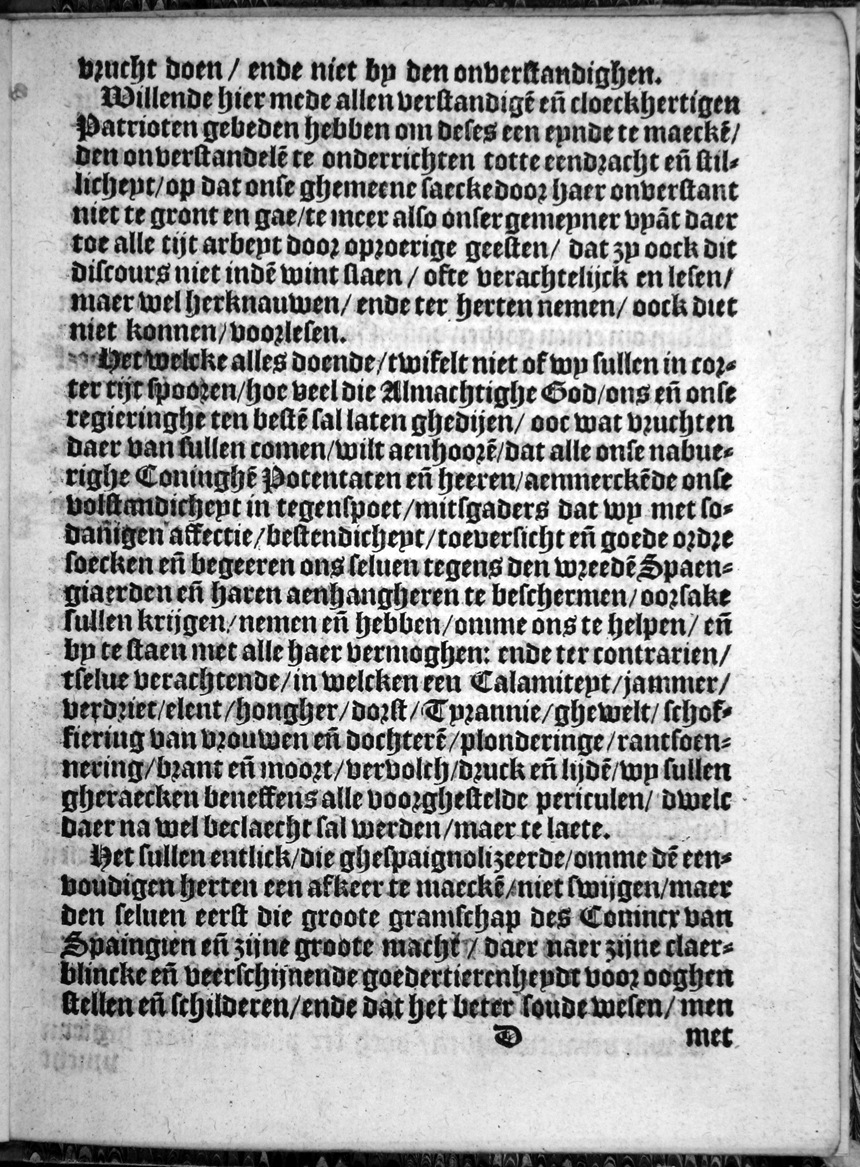 vrucht doen / ende niet by den onverstandighen.
Willende hier mede allen verstandigē eñ cloeckhertigen
Patrioten gebeden hebben om deses een eynde te maeckē/
den onverstandelē te onderrichten totte eendracht eñ stil-
licheyt/op dat onse ghemeene saecke door haer onverstant
niet te gront en gae/te meer also onser gemeyner vyāt daer
toe alle tijt arbeyt door oproerige geesten/ dat zy oock dit
discours niet indē wint slaen / ofte verachtelijck en lesen/
maer wel herknauwen/ ende ter herten nemen/ oock diet
niet konnen/voorlesen.
Het welcke alles doende/twifelt niet of wy sullen in cor-
ter tijt spooren/hoe veel die Almachtighe God/ons eñ onse
regieringhe ten bestē sal laten ghedijen/ ooc wat vruchten
daer van sullen comen/wilt aenhoorē/dat alle onse nabue-
righe Coninghē Potentaten eñ heeren/aenmerckēde onse
volstandicheyt in tegenspoet/mitsgaders dat wy met so-
dañigen affectie/bestendicheyt/toeversicht eñ goede ordre
soecken eñ begeeren ons seluen tegens den wreedē Spaen-
giaerden eñ haren aenhangheren te beschermen/oorsake
sullen krijgen/nemen eñ hebben/omme ons te helpen/ eñ
by te staen met alle haer vermoghen: ende ter contrarien/
tselue verachtende/in welcken een Calamiteyt/jammer/
verdriet/elent/hongher/dorst/Tyrannie/ghewelt/schof-
fiering van vrouwen eñ dochterē/plonderinge/rantsoen-
nering/brant eñ moort/vervolch/druck eñ lijdē/wy sullen
gheraecken beneffens alle voorghestelde periculen/ dwelc
daer na wel beclaecht sal werden/maer te laete.
Het sullen entlick/die ghespaignolizeerde/omme dē een-
voudigen herten een afkeer te maeckē/niet swijgen/maer
den seluen eerst die groote gramschap des Coninck van
Spaingien eñ zijne groote macht / daer naer zijne claer-
blincke eñ veerschijnende goedertierenheydt voor ooghen
stellen eñ schilderen/ende dat het beter soude wesen/ men
D met